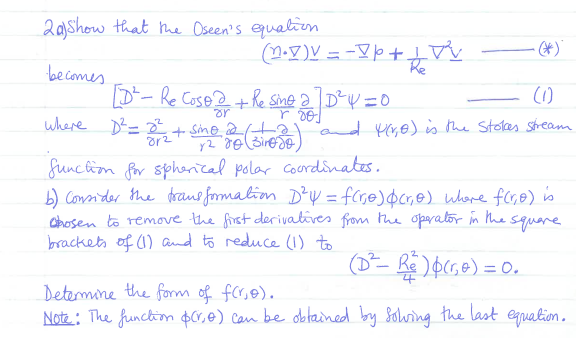 2a) Show that the Oseen's equation
(n·∇)v = -∇p + 1/Re ∇²v ——— (*)
becomes
[D² - Re Cosθ ∂/∂r + Re sinθ/r ∂/∂θ] D²ψ = 0 ——— (1)
where D² = ∂²/∂r² + sinθ/r² ∂/∂θ (1/sinθ ∂/∂θ) and ψ(r,θ) is the Stokes stream
function for spherical polar coordinates.
b) Consider the transformation D²ψ = f(r,θ)φ(r,θ) where f(r,θ) is
chosen to remove the first derivatives from the operator in the square
brackets of (1) and to reduce (1) to
(D² - Re²/4) φ(r,θ) = 0.
Determine the form of f(r,θ).
Note: The function φ(r,θ) can be obtained by solving the last equation.